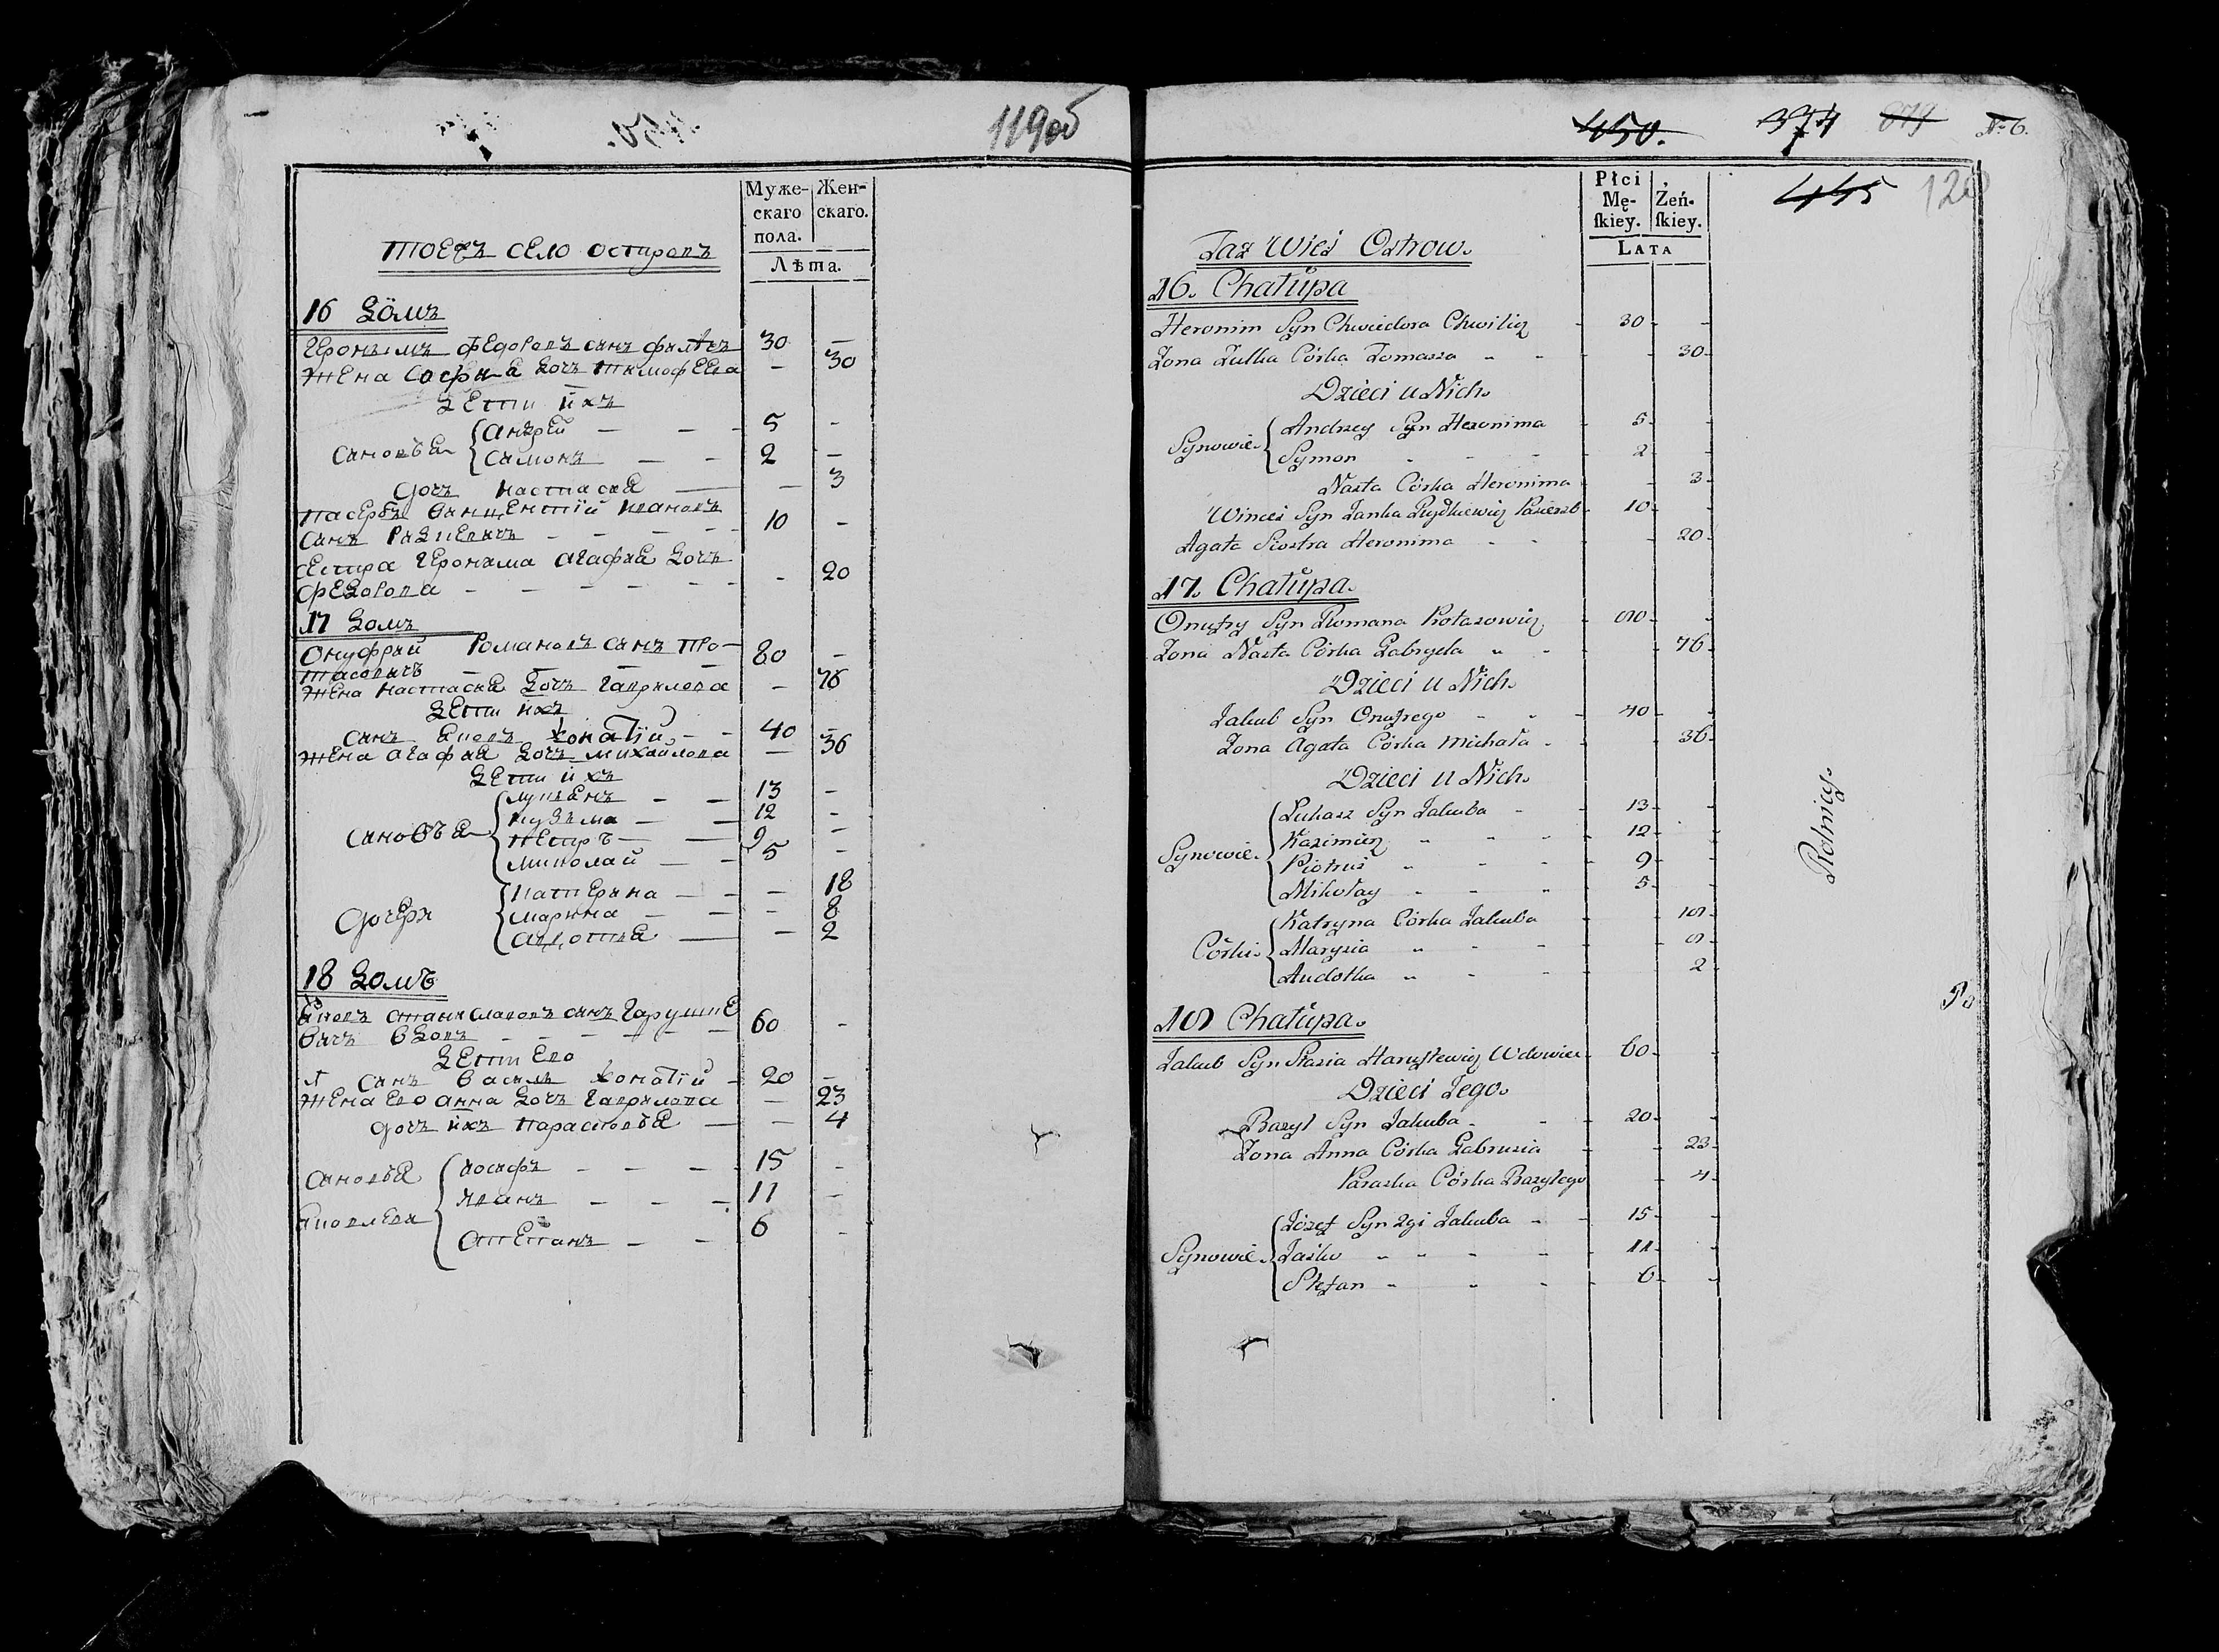 119об
Муже-
скаго
пола.
Жен-
скаго.
Лѣта.
тоежъ село островъ
16 домъ
Геронимъ Федоровъ сынъ 30 —
жена Софиа дочь Тимофеева — 30
дети ихъ
сановъе
Андрей — — 5 -
Самонъ — — 2 —
дочь настасиа — — 3
пасербъ Винцентий Ивановъ
сынъ — — — 10 -
сестра Геронима Агафиа дочь
Федорова - — — — — - 20
17 домъ
Онуфрий Романовъ сынъ
— — — 80 —
жена настасиа дочь Гаврилова — 76
дети ихъ
сынъ Яковъ - - 40 —
жена Агафиа дочь михайлова — 36
дети ихъ
сановъе
лукианъ — — 13 -
кузьма — — 12 -
петръ — — 9 -
миколай — — 5 -
дочери
катерина — — — 18
марина — — - 8
авдотиа — — 2
18 домъ
Яковъ станиславовъ сынъ
вдовъ — — — — — 60 -
дети его
сынъ василь - 20 —
жена его анна дочь Гаврилова — 23
дочь ихъ парасковиа — — 4
сановъе
Яковлева
иосифъ - — — — 15 -
иванъ — — — 11 —
степанъ — — 6 -
450.
374
879
№ 6.
445
120
Płci
Mę-
skiey.
Żeń-
skiey.
LATA
Taż Wieś Ostrow.
16. Chałupa
Heronim Syn Chwiedora Chwilicz - 30 - -
Zona Zulka Córka Tomasza - - - 30 -
Dzieci u Nich.
Synowie.
Andrzey Syn Heronima - 5 - -
Symon - - - 2 - -
Nasta Córka Heronima - - 3 -
Wincei Syn Janka Pasierzb - 10 - -
Agata Siostra Heronima - - - - 20 -
17. Chałupa.
Onufry Syn Romana Kotasowicz - 80 - -
Zona Nasta Córka Gabryela - - - 76 -
Dzieci u Nich.
Jakub Syn Onufrego - - - 40 - -
Zona Agata Córka Michała - - - 36 -
Dzieci u Nich.
Synowie.
Lukasz Syn Jakuba - - 13 - -
Kazimierz - - - 12 - -
Piotruś - - - 9 - -
Mikołay - - - 5 - -
Córki.
Katryna Córka Jakuba - - 18 -
Marysia - - - - 8 -
Audotka - - - - 2 -
18 Chałupa.
Jakub Syn Stasia Wdowiec - 60 - -
Dzieci Jego.
Bazyl Syn Jakuba - - - 20 - -
Zona Anna Córka Gabrusia - - 23 -
Paraska Córka Bazylego - 4 -
Synowie.
Józef Syn 2gi Jakuba - - 15 - -
Jaśko - - - - - 11 - -
Stefan - - - - 6 - -
Rolniczy.